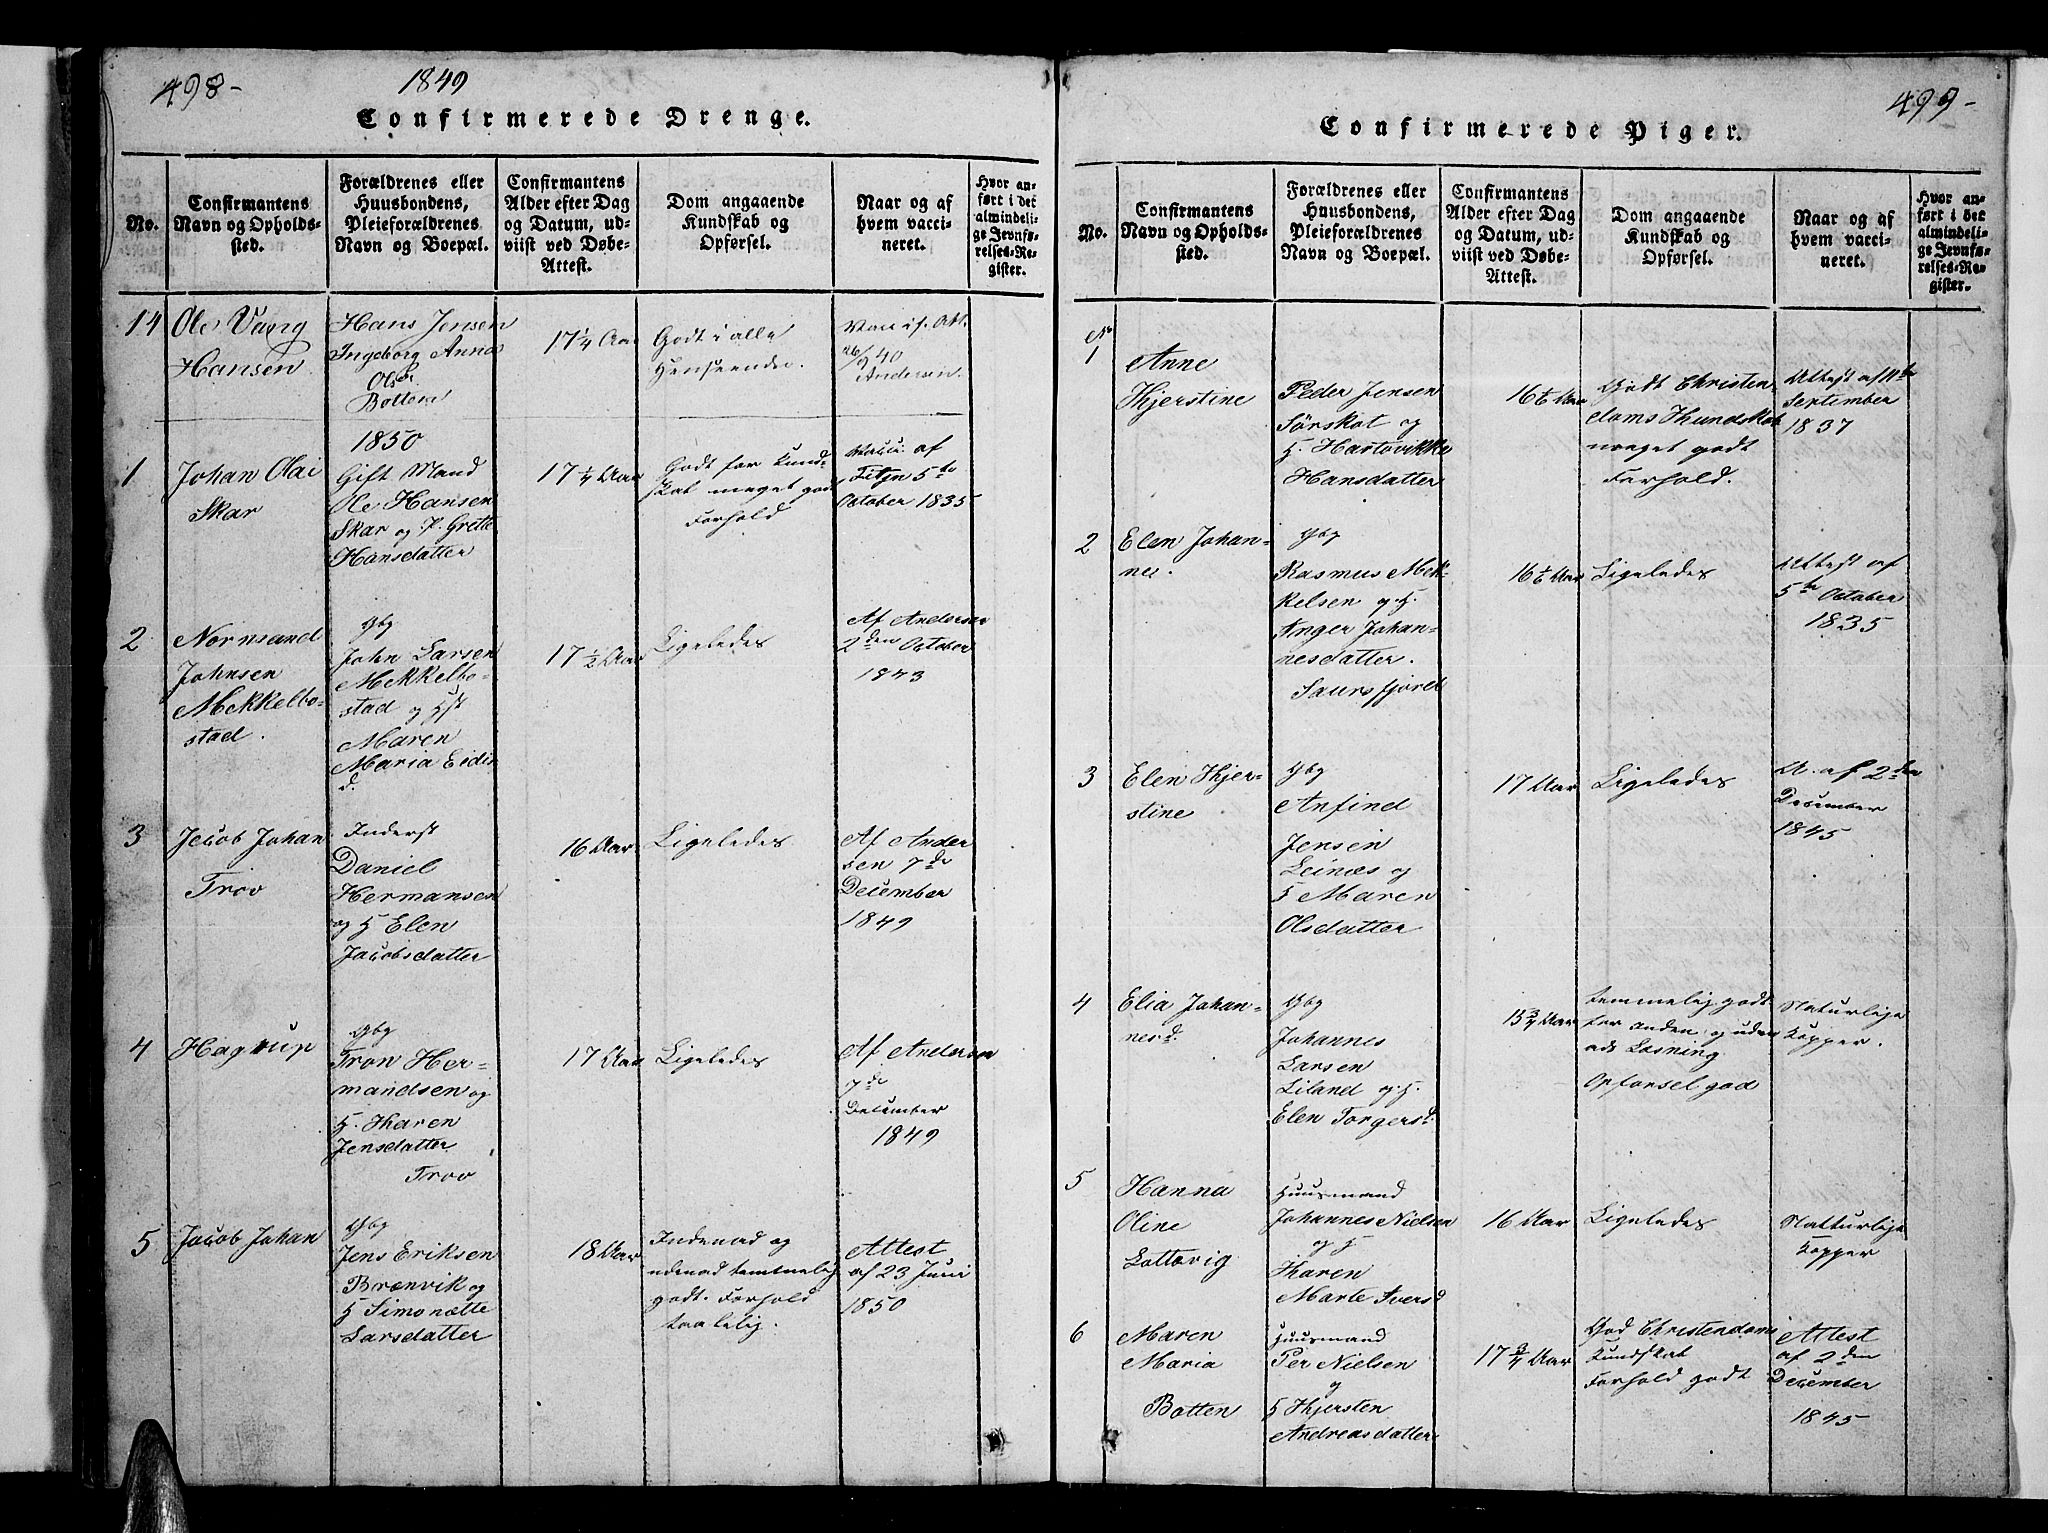 498-
1849
Confirmerede Drenge.
No.
Confirmantens
Navn og Opholds-
sted.
Forældrenes eller
Huusbondens,
Pleieforældrenes
Navn og Boepæl.
Confirmantens
Alder efter Dag
og Datum, ud-
viist ved Døbe-
Attest.
Dom angaaende
Kundskab og
Opførsel.
Naar og af
hvem vacci-
neret.
Hvor an-
ført i det
almindeli-
ge Jevnfø-
relses-Re-
gister.
14
Ole Vang
Hansen
Hans Jensen
Ingeborg Anna
Olsd.
Botten
17 1/4 Aar
Godt i alle
Henseender.
Vac. if. Att.
26/9 40
Andersen.
1850
1
Johan Olai
Skar
Gift Mand
Ole Hansen
Skar og P. Grette
Hansdatter
17 1/4 Aar
Godt for Kund-
skab meget godt
Forhold
Vacci. af
5te
October 1835
2
Normsand
Johnsen
Mekkelbo-
stad.
Gbg
John Larsen
Mekkelbo-
stad og Hst
Maren
Maria Eidis
d.
17 1/2 Aar
Ligeledes
Af Andersen
2den October
1843
3
Jacob Johan
Trov
Inderst
Daniel
Hermansen
og H Elen
Jacobsdatter
16 Aar
Ligeledes
Af Ander
sen 7de
December
1849
4
Hagrup
Gbg
Tron Her-
mandsen og
H. Karen
Jensdatter
Trov
17 Aar
Ligeledes
Af Andersen
7de
December
1849
5
Jacob Johan
Gbg
Jens Eriksen
Brænvik og
H Simonette
Larsdatter
18 Aar
Indenad og
udenad temmelig
godt. Forhold
taalelig.
Attest
af 23 Juni
1850
499-
Confirmerede Piger.
No.
Confirmantens
Navn og Opholds-
sted.
Forældrenes eller
Huusbondens,
Pleieforældrenes
Navn og Boepæl.
Confirmantens
Alder efter Dag
og Datum, ud-
viist ved Døbe-
Attest.
Dom angaaende
Kundskab og
Opførsel.
Naar og af
hvem vacci-
neret.
Hvor an-
ført i det
almindeli-
ge Jevnfø-
relses-Re-
gister.
No
1
Anne
Kjerstine
Peder Jensen
Sørskot og
H. Hartvikke
Hansdatter
16 1/6 Aar
Godt Christen-
doms Kundskab
meget godt
Forhold.
Attest af 11te
September
1837
2
Elen Johan-
ne.
Gbg
Rasmus Mek-
kelsen og H.
Anger Johan-
nesdatter.
Saursfjord
16 1/6 Aar
Ligeledes
Attest af
5te October
1835
3
Elen Kjer-
stine
Gbg
Anfind
Jensen
Leinæs og
H Maren
Olsdatter
17 Aar
Ligeledes
A. af 2den
December
1845
4
Elia Johan-
nesd.
Gbg
Johannes
Larsen
Liland og H.
Elen Torgersd.
15 3/4 Aar
temmelig godt
for inden og uden
ads Læsning
Opførsel god
Naturlige
Kopper.
5
Hanna
Oline
Lottavig
Huusmand
Johannes Nielsen
og H
Karen
Marte Iversd
16 Aar
Ligeledes
Natturlige
Kopper
6
Maren
Maria
Botten
Huusmand
Per Nielsen
og
H Kjersten
Andreasdatter
17 3/4 Aar
God Christendoms
Kundskab
Forhold godt
Attest
af 2den
December
1845